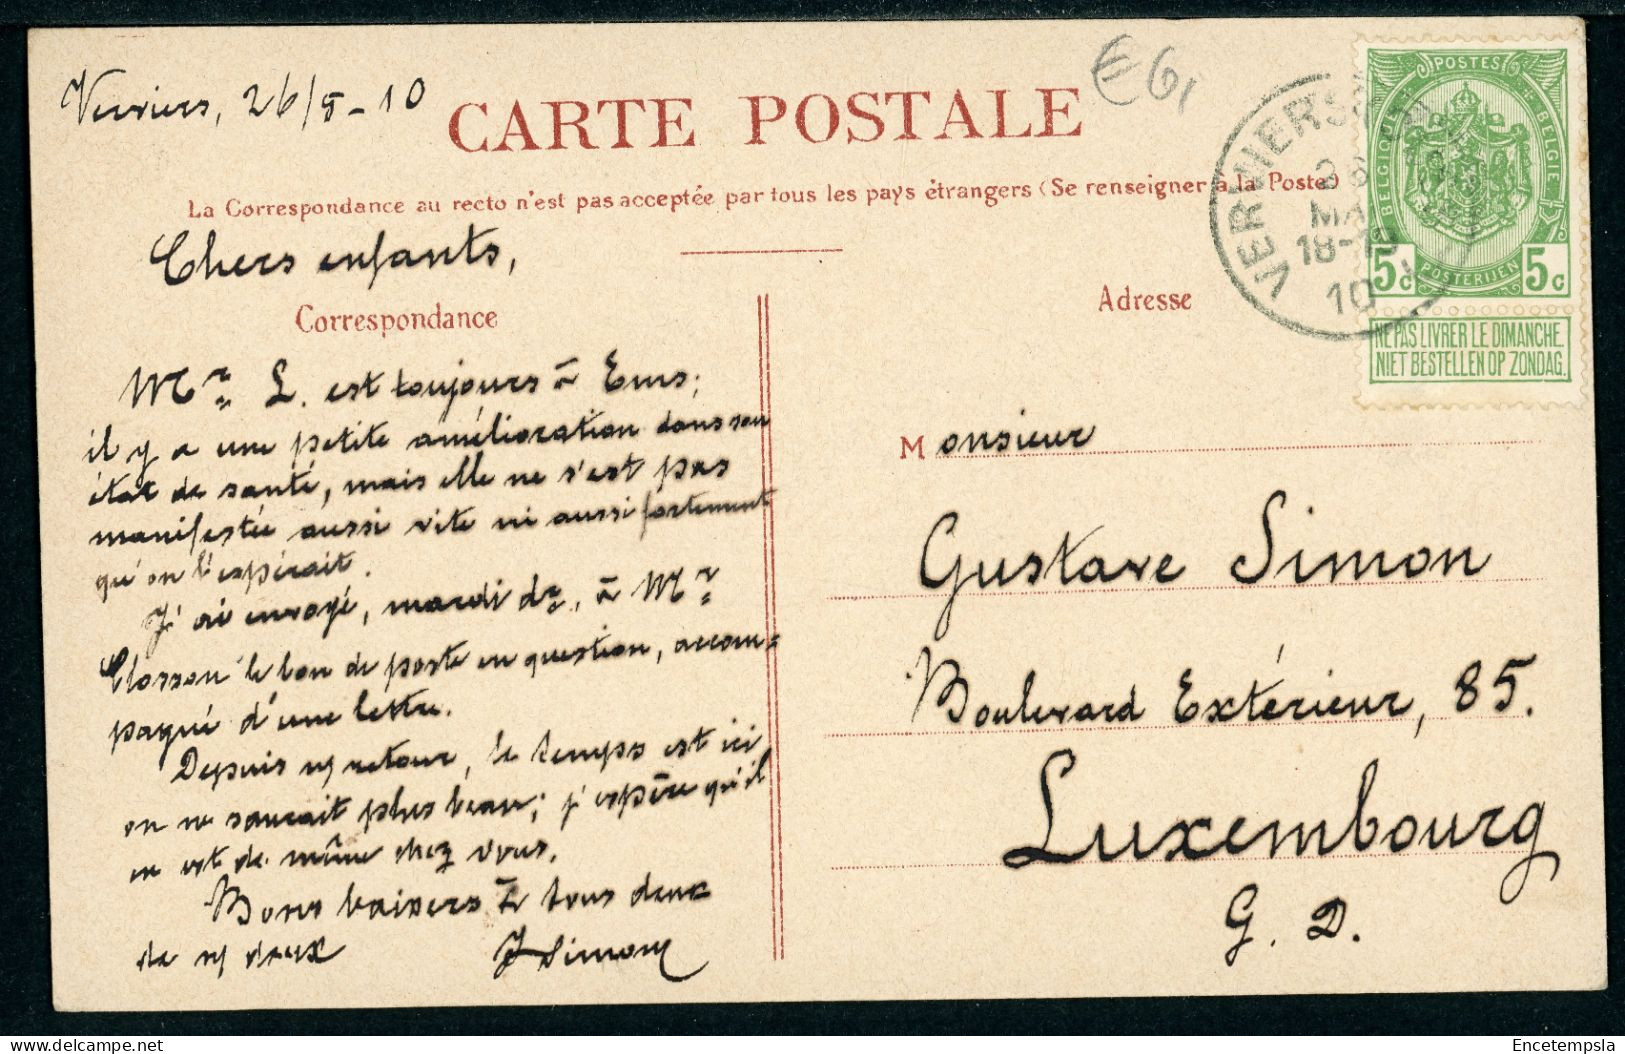 Verviers, 26/5-10
CARTE POSTALE
€61
La Correspondance au recto n'est pas acceptée par tous les pays étrangers (Se renseigner à la Poste)
VERVIERS
26
MA
18-19
10
POSTES
BELGIQUE
BELGIË
5c POSTERIJEN 5c
NE PAS LIVRER LE DIMANCHE.
NIET BESTELLEN OP ZONDAG.
Chers enfants,
Correspondance
Mr L. est toujours à Ems;
il y a une petite amélioration dans son
état de santé, mais elle ne s'est pas
manifestée aussi vite ni aussi fortement
qu'on l'espérait.
J'ai envoyé, mardi dr, à Mr
Closson le bon de poste en question, accom=
pagné d'une lettre.
Depuis n/ retour, le temps est ici
on ne saurait plus beau; j'espère qu'il
en est de même chez vous.
Bons baisers à tous deux
de n/ deux
J Simon
Adresse
Monsieur
Gustave Simon
Boulevard Extérieur, 85.
Luxembourg
G. D.
Encetempsla